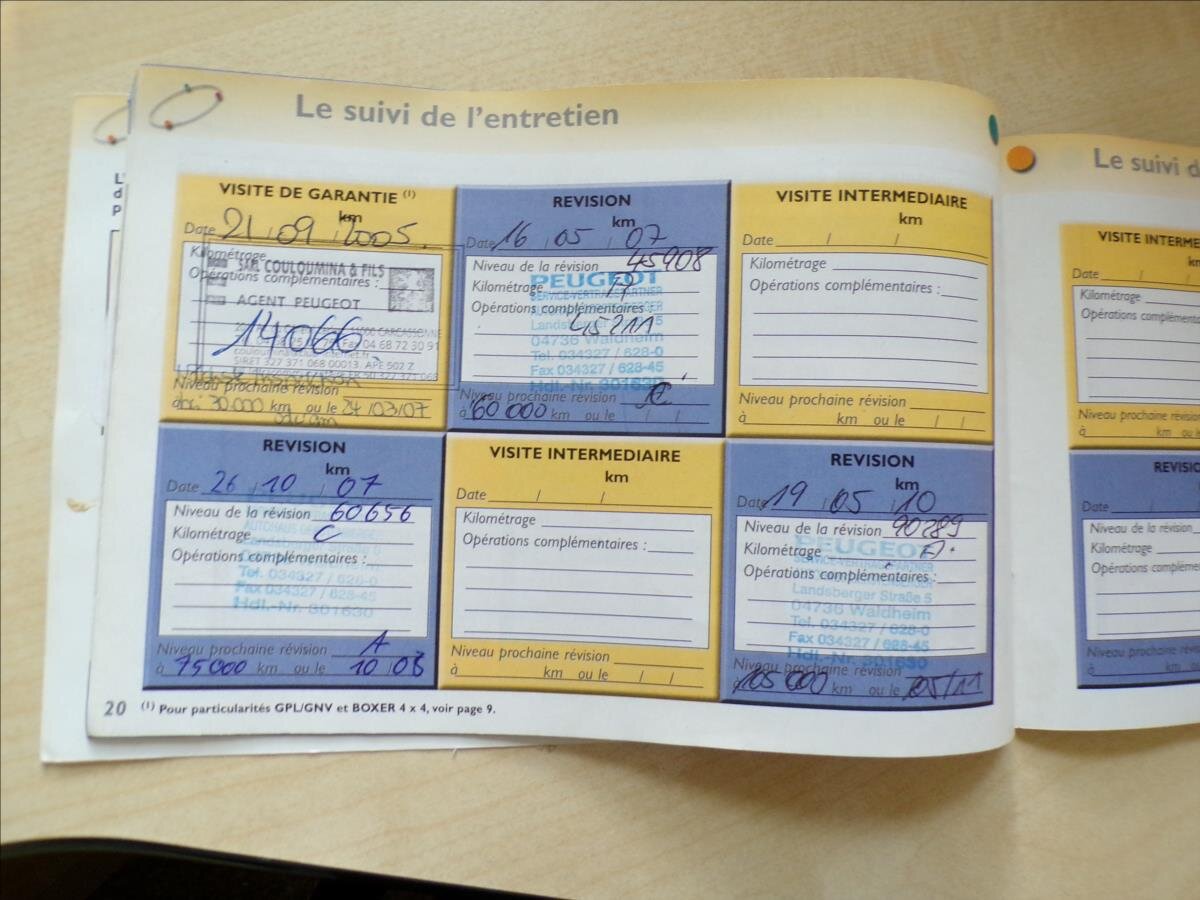 Le suivi de l'entretien
VISITE DE GARANTIE (1)
km
Date 21 / 09 / 2005.
Kilométrage
SARL COULOUMINA & FILS
Opérations complémentaires :
AGENT PEUGEOT
14066
11000 CARCASSONNE
Fax 04 68 72 30 91
SIRET 327 371 068 00013. APE 502 Z
Niveau prochaine révision
à 30.000 km ou le 24/03/07
REVISION
km
Date 16 / 05 / 07
Niveau de la révision 45908
PEUGEOT
Kilométrage
SERVICE-VERTRAGSPARTNER
Opérations complémentaires :
Landsberger
45211
04736 Waldheim
Tel. 034327 / 628-0
Fax 034327 / 628-45
Hdl.-Nr. 301630
Niveau prochaine révision C
à 60 000 km ou le / /
VISITE INTERMEDIAIRE
km
Date / /
Kilométrage
Opérations complémentaires :
Niveau prochaine révision
à km ou le / /
REVISION
km
Date 26 / 10 / 07
Niveau de la révision 60656
Kilométrage C
AUTOHAUS
Opérations complémentaires :
Landsberger Straße
Tel. 034327 / 628-0
Fax 034327 / 628-45
Hdl.-Nr. 301630
Niveau prochaine révision A
à 75000 km ou le 10/08
VISITE INTERMEDIAIRE
km
Date / /
Kilométrage
Opérations complémentaires :
Niveau prochaine révision
à km ou le / /
REVISION
km
Date 19 / 05 / 10
Niveau de la révision 90289
Kilométrage A
PEUGEOT
SERVICE-VERTRAGSPARTNER
Opérations complémentaires :
Landsberger Straße 5
04736 Waldheim
Tel. 034327 / 628-0
Fax 034327 / 628-45
Hdl.-Nr. 301630
Niveau prochaine révision
à 105 000 km ou le 05/11
20 (1) Pour particularités GPL/GNV et BOXER 4 x 4, voir page 9.
Le suivi d
VISITE INTERME
km
Date / /
Kilométrage
Opérations complémenta
Niveau prochaine révision
à km ou le
REVISIO
km
Date /
Niveau de la révision
Kilométrage
Opérations compléme
Niveau prochaine révis
à km ou